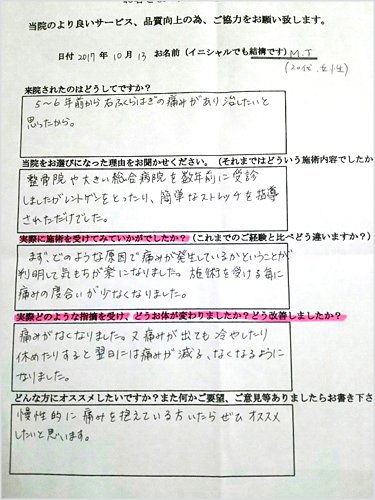 当院のより良いサービス、品質向上の為、ご協力をお願い致します。
日付 2017年 10月 13 お名前(イニシャルでも結構です) M.I
(20代、女性)
来院されたのはどうしてですか?
5~6年前から右ふくらはぎの痛みがあり治したいと
思ったから。
当院をお選びになった理由をお聞かせください。(それまではどういう施術内容でしたか
整骨院や大きい総合病院を数年前に受診
しましたがレントゲンをとったり、簡単なストレッチを指導
されただけでした。
実際に施術を受けてみていかがでしたか?(これまでのご経験と比べどう違いますか?)
まずどのような原因で痛みが発生しているかということが
判明して気もちが楽になりました。施術を受ける毎に
痛みの度合いが少なくなりました。
実際どのような指摘を受け、どうお体が変わりましたか?どう改善しましたか?
痛みがなくなりました。又痛みが出ても冷やしたり
休めたりすると翌日には痛みが減る、なくなるように
なりました。
どんな方にオススメしたいですか?また何かご要望、ご意見等ありましたらお書き下さ
慢性的に痛みを抱えている方いたらぜひオススメ
したいと思います。